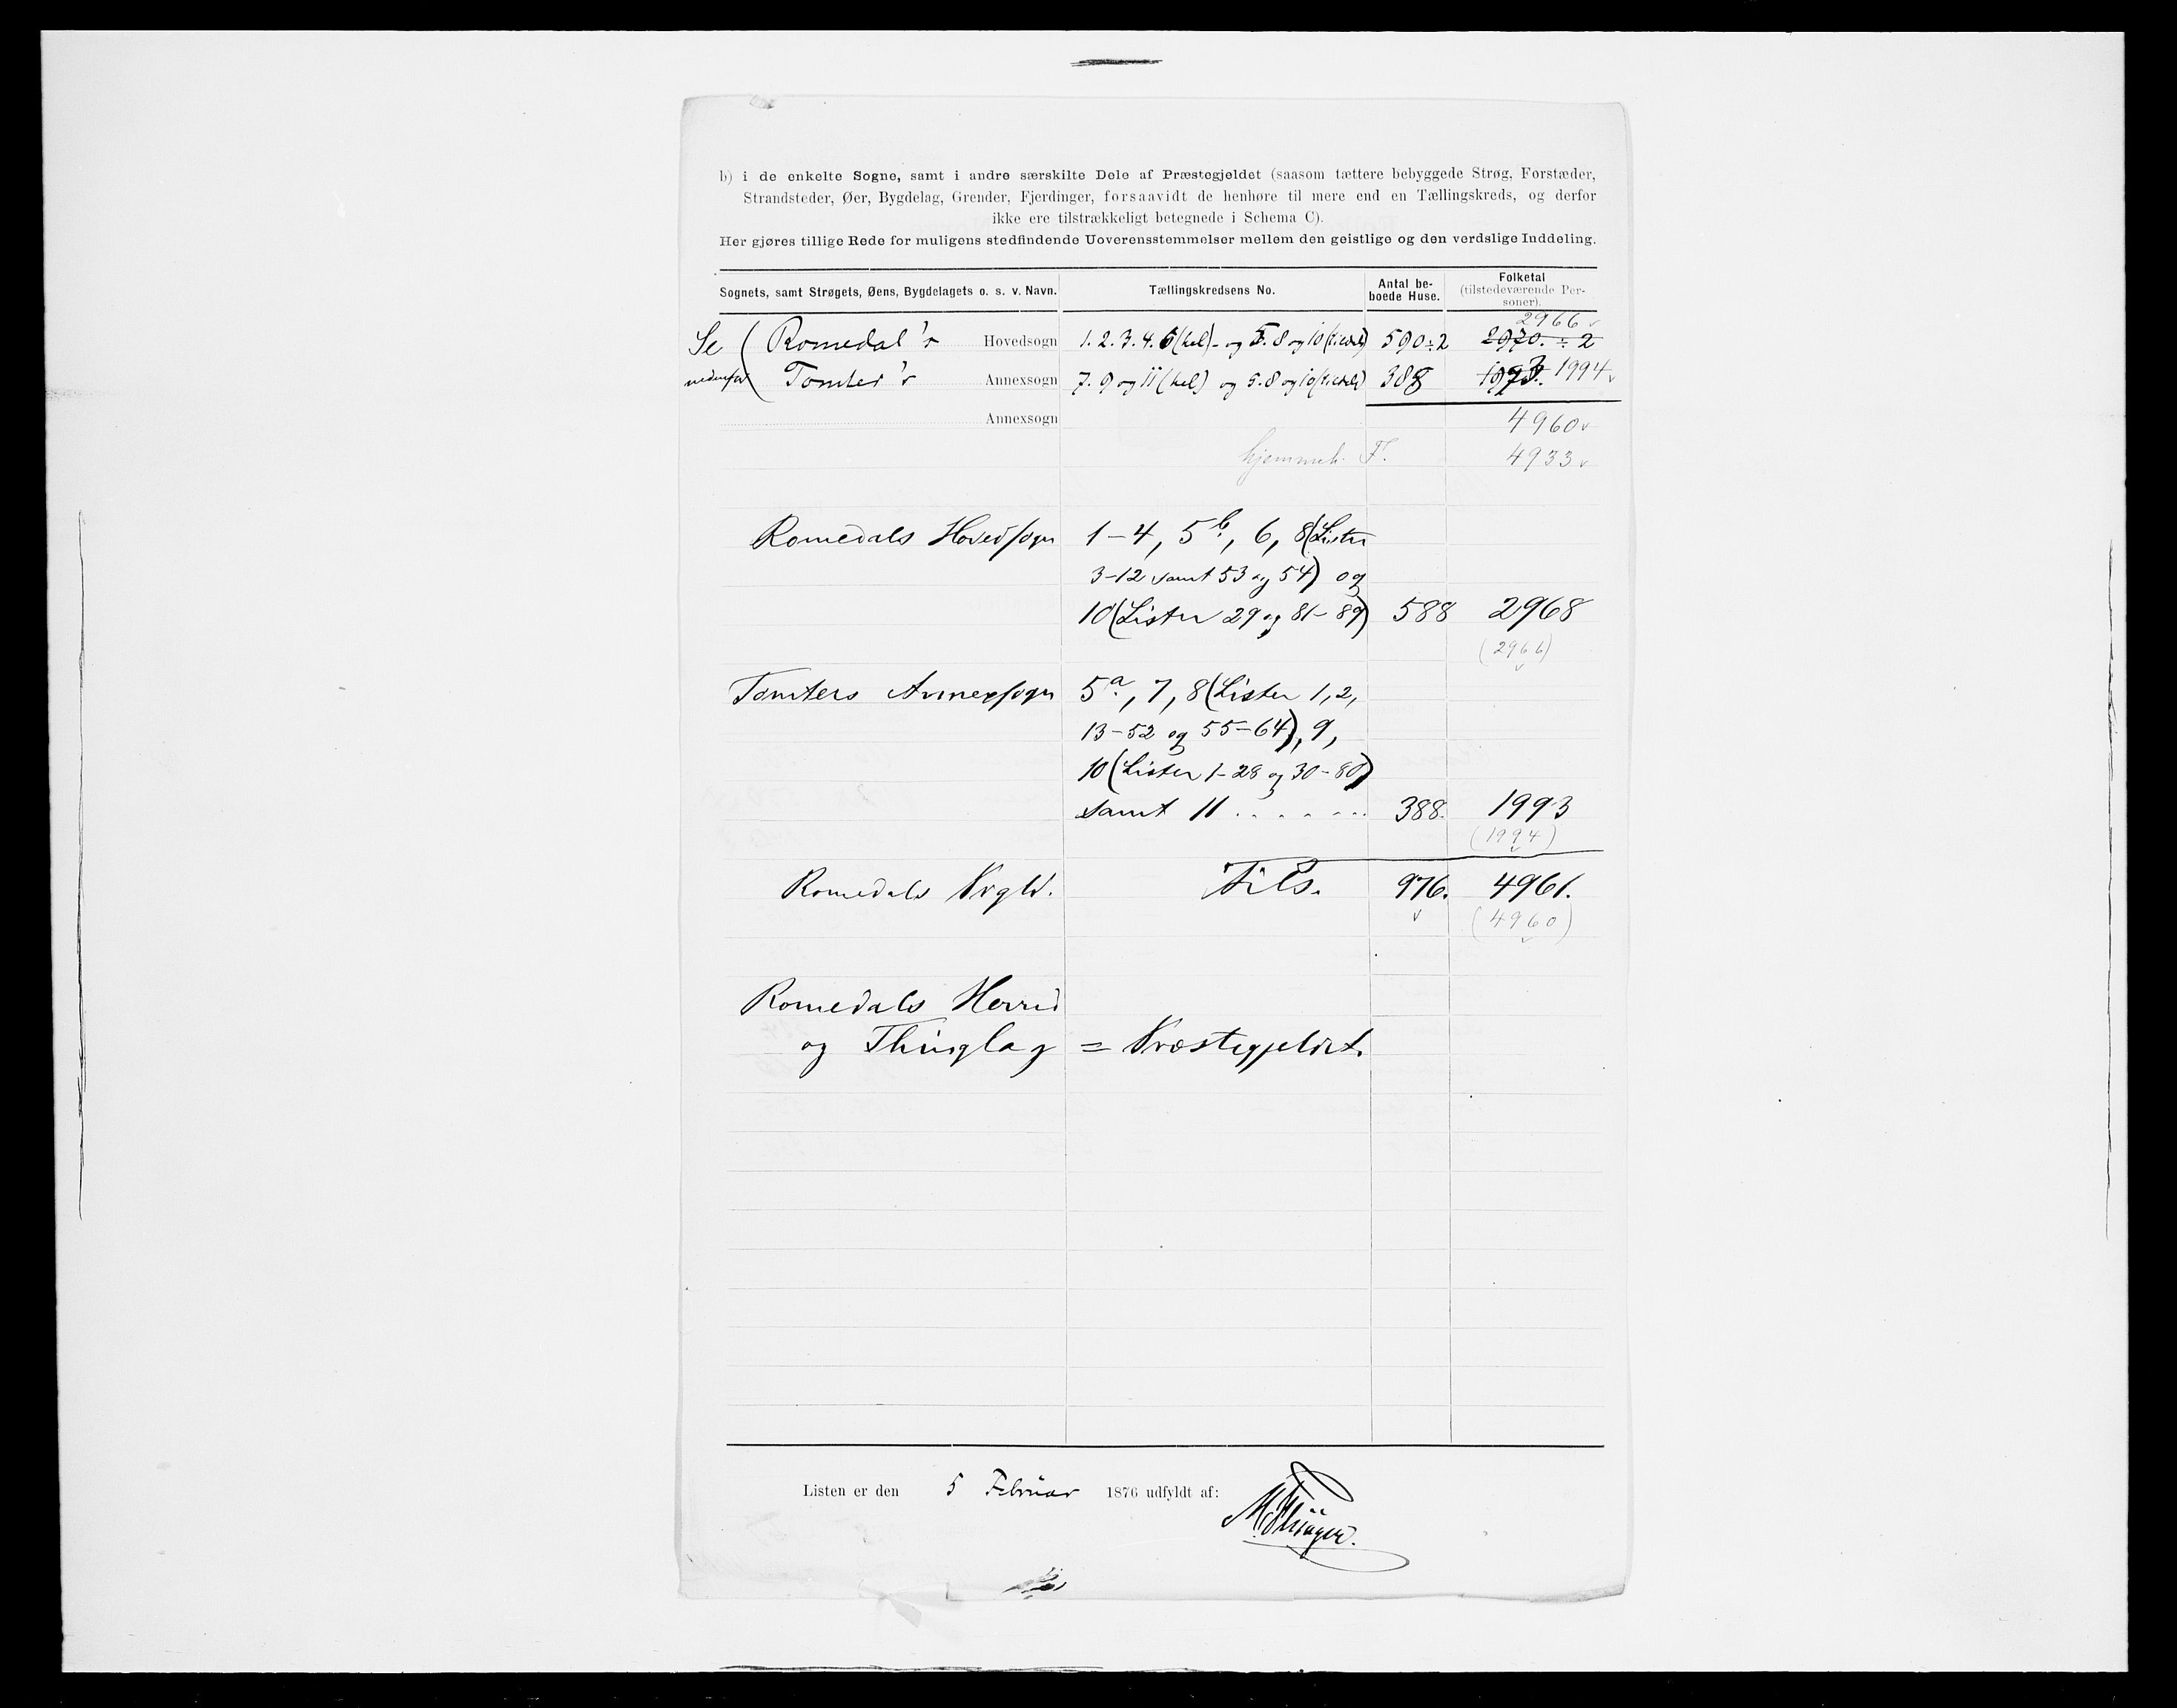 b) i de enkelte Sogne, samt i andre særskilte Dele af Præstegjeldet (saasom tættere bebyggede Strøg, Forstæder,
Strandsteder, Øer, Bygdelag, Grender, Fjerdinger, forsaavidt de henhøre til mere end en Tællingskreds, og derfor
ikke ere tilstrækkeligt betegnede i Schema C).
Her gjøres tillige Rede for muligens stedfindende Uoverensstemmelser mellem den geistlige og den verdslige Inddeling.
Sognets, samt Strøgets, Øens, Bygdelagets o. s. v. Navn. Tællingskredsens No. Antal beboede Huse. Folketal (tilstedeværende Personer).
2966
Se ( Romedal's Hovedsogn 1. 2. 3. 4. 6 (hel) - og 5. 8 og 10 590÷2 2970. ÷ 2
nedenfor ( Tomter's Annexsogn 7. 9 og 11 (hel) og 5. 8 og 10 388 1994
Annexsogn 4960
hjemmeh. F. 4933
Romedals Hovedsogn 1–4, 5b., 6, 8 (Lister
3–12 samt 53 og 54) og
10 (Lister 29 og 81–89) 588 2968
(2966)
Tomters Annexsogn 5a., 7, 8 (Lister 1, 2,
13–52 og 55–64), 9,
10 (Lister 1–28 og 30–80)
samt 11 . . . . . . . 388. 1993
(1994)
Romedals Prgld. Tils. 976. 4961.
(4960)
Romedals Herred
og Thinglag = Præstegjeldet.
Listen er den 5 Februar 1876 udfyldt af: